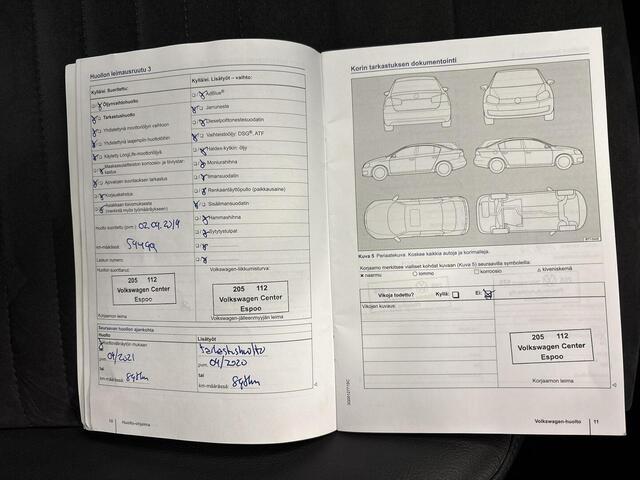 Huollon leimausruutu 3
Kyllä/ei. Suoritettu:
Öljynvaihtohuolto
Tarkastushuolto
Yhdistettynä moottoriöljyn vaihtoon
Yhdistettynä laajempiin huoltotöihin
Käytetty LongLife-moottoriöljyä
Ajovalojen suuntauksen tarkastus
Korjauskehotus
Asiakkaan toivomuksesta
(merkitä myös työmääräykseen)
Huolto suoritettu (pvm.): 02.04.2019
km-määrässä:
Laskun numero:
Huollon suorittanut:
205 112
Volkswagen Center
Espoo
Korjaamon leima
Kyllä/ei. Lisätyöt – vaihto:
AdBlue®
Jarruneste
Dieselpolttonestesuodatin
Vaihteistoöljy: DSG®, ATF
Haldex-kytkin: öljy
Moniurahihna
Ilmansuodatin
Renkaantäyttöpullo (paikkausaine)
Sisäilmansuodatin
Hammashihna
Sytytystulpat
Volkswagen-liikkumisturva:
205 112
Volkswagen Center
Espoo
Volkswagen-jälleenmyyjän leima
Seuraavan huollon ajankohta
Huolto
Huoltovälinäytön mukaan
pvm: 04/2021
tai
km-määrässä: 89tkm
Lisätyöt
Tarkastushuolto
pvm: 04/2020
tai
km-määrässä: 89tkm
10 Huolto-ohjelma
Korin tarkastuksen dokumentointi
Kuva 5 Periaatekuva. Koskee kaikkia autoja ja korimalleja.
Korjaamo merkitsee vialliset kohdat kuvaan (Kuva 5) seuraavilla symboleilla:
× naarmu ○ lommo □ korroosio △ kiveniskemä
Vikoja todettu? Kyllä: Ei:
Vikojen kuvaus:
205 112
Volkswagen Center
Espoo
Korjaamon leima
Volkswagen-huolto 11